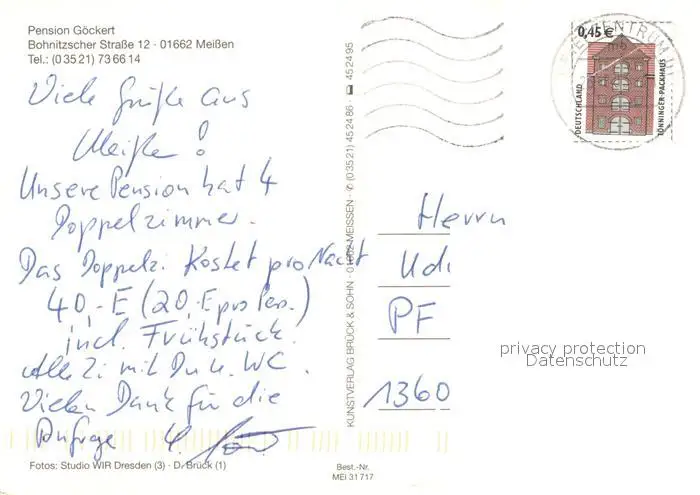 Pension Göckert
Bohnitzscher Straße 12 · 01662 Meißen
Tel.: (0 35 21) 73 66 14
Viele Grüße aus
Meißen!
Unsere Pension hat 4
Doppelzimmer.
Das Doppelzi. kostet pro Nacht
40,-E (20,-E pro Pers.)
incl. Frühstück.
Alle Zi mit Du u. WC.
Vielen Dank für die
Anfrage
Fotos: Studio WIR Dresden (3) · D. Brück (1)
KUNSTVERLAG BRÜCK & SOHN · 01662 MEISSEN · ✆ (0 35 21) 45 24 86 · 45 24 95
Best.-Nr.
MEI 31717
0,45 €
DEUTSCHLAND
TÖNNINGER PACKHAUS
BRIEFZENTRUM
Herrn
Udi
PF
1360
privacy protection
Datenschutz